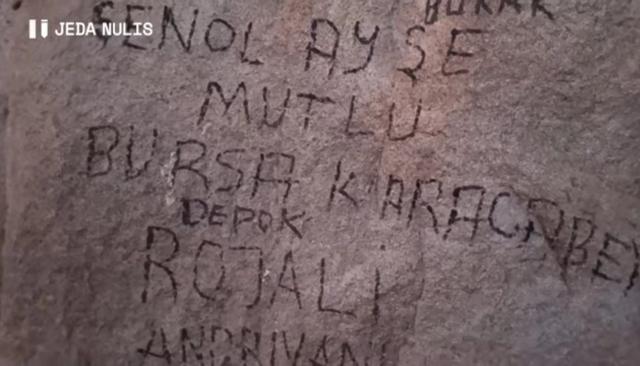 JEDA NULIS
BURAK
ŞENOL AYŞE
MUTLU
BURSA KARACABEY
DEPOK
ROJALi
ANDRIYANI